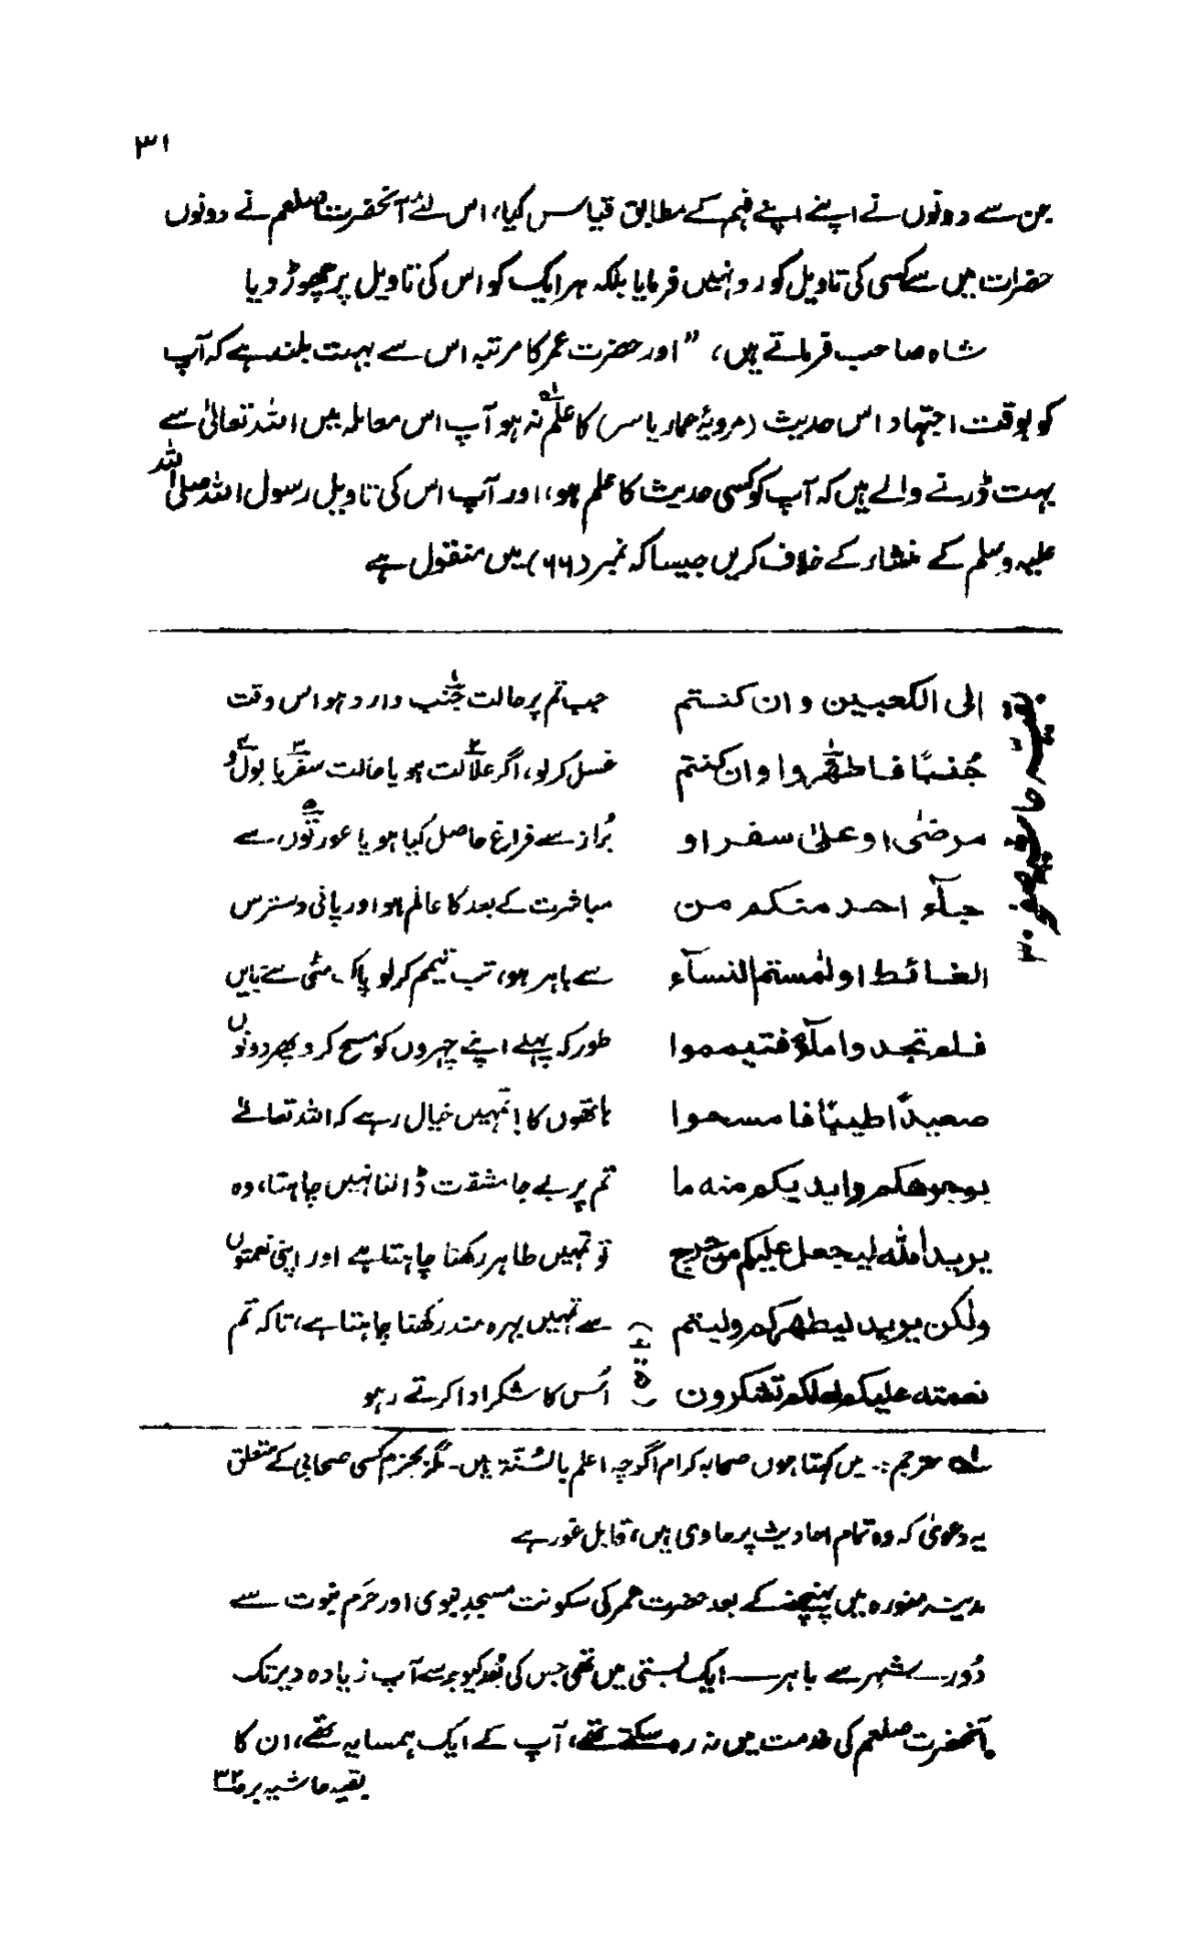 ۳۱
جن سے دونوں نے اپنے اپنے فہم کے مطابق قیاس کیا، اس لئے آنحضرت صلعم نے دونوں
حضرات میں سے کسی کی تاویل کو رد نہیں فرمایا بلکہ ہر ایک کو اس کی تاویل پر چھوڑ دیا
شاہ صاحب فرماتے ہیں، ”اور حضرت عمر کا مرتبہ اس سے بہت بلند ہے کہ آپ
کو بوقت اجتہاد اس حدیث (مرویۂ عمار یاسر) کا علم لہ نہ ہو آپ اس معاملہ میں اللہ تعالیٰ سے
بہت ڈرنے والے ہیں کہ آپ کو کسی حدیث کا علم ہو، اور آپ اس کی تاویل رسول اللہ صلی اللہ
علیہ وسلم کے منشاء کے خلاف کریں جیسا کہ نمبر (۶۶) میں منقول ہے
بقیہ حاشیہ صفحہ ۳۰
الی الکعبین وان کنتم
جُنبًا فاطھروا وان کنتم
مرضٰی او علیٰ سفر او
جآء احد منکم من
الغائط او لٰمستم النسآء
فلم تجدوا مآءً فتیمموا
صعیدًا طیبًا فامسحوا
بوجوھکم وایدیکم منہ ما
یرید اللہ لیجعل علیکم من حرج
ولکن یرید لیطھرکم ولیتم
نعمتہ علیکم لعلکم تشکرون
جب تم پر حالت جُنب ۱ وارد ہو اس وقت
غسل کر لو، اگر علالت ۲ ہو یا حالت سفر ۳ یا بول ۴ و
بُراز سے فراغ حاصل کیا ہو یا عورتوں ۵ سے
مباشرت کے بعد کا عالم ہو اور پانی دسترس
سے باہر ہو، تب تیمم کر لو پاک مٹی سے بایں
طور کہ پہلے اپنے چہروں کو مسح کرو پھر دونوں
ہاتھوں کا! تمہیں خیال رہے کہ اللہ تعالےٰ
تم پر بے جا مشقت ڈالنا نہیں چاہتا، وہ
تو تمہیں طاہر رکھنا چاہتا ہے اور اپنی نعمتوں
سے تمہیں بہرہ مند رکھنا چاہتا ہے، تاکہ تم
اُس کا شکر ادا کرتے رہو
لہ مترجم :۔ میں کہتا ہوں صحابہ کرام اگرچہ اعلم بالسُنّۃ ہیں۔ مگر بجزم کسی صحابی کے متعلق
یہ دعویٰ کہ وہ تمام احادیث پر حاوی ہیں، قابل غور ہے
مدینہ منورہ میں پہنچنے کے بعد حضرت عمر کی سکونت مسجدِ نبوی اور حَرَم نبوت سے
دُور۔ شہر سے باہر۔ ایک بستی میں تھی جس کی بُعد کیوجہ سے آپ زیادہ دیر تک
آنحضرت صلعم کی خدمت میں نہ رہ سکتے تھے، آپ کے ایک ہمسایہ تھے، ان کا
بقیہ حاشیہ بر ص۳۲